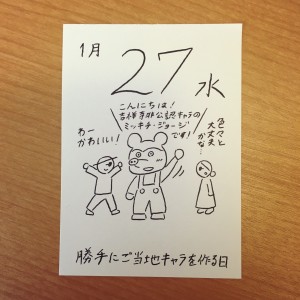 1月
27 水
こんにちは!
吉祥寺非公認キャラの
ミッキチ・ジョージ
です!
わー
かわいい!
色々と
大丈夫
かな…
勝手にご当地キャラを作る日